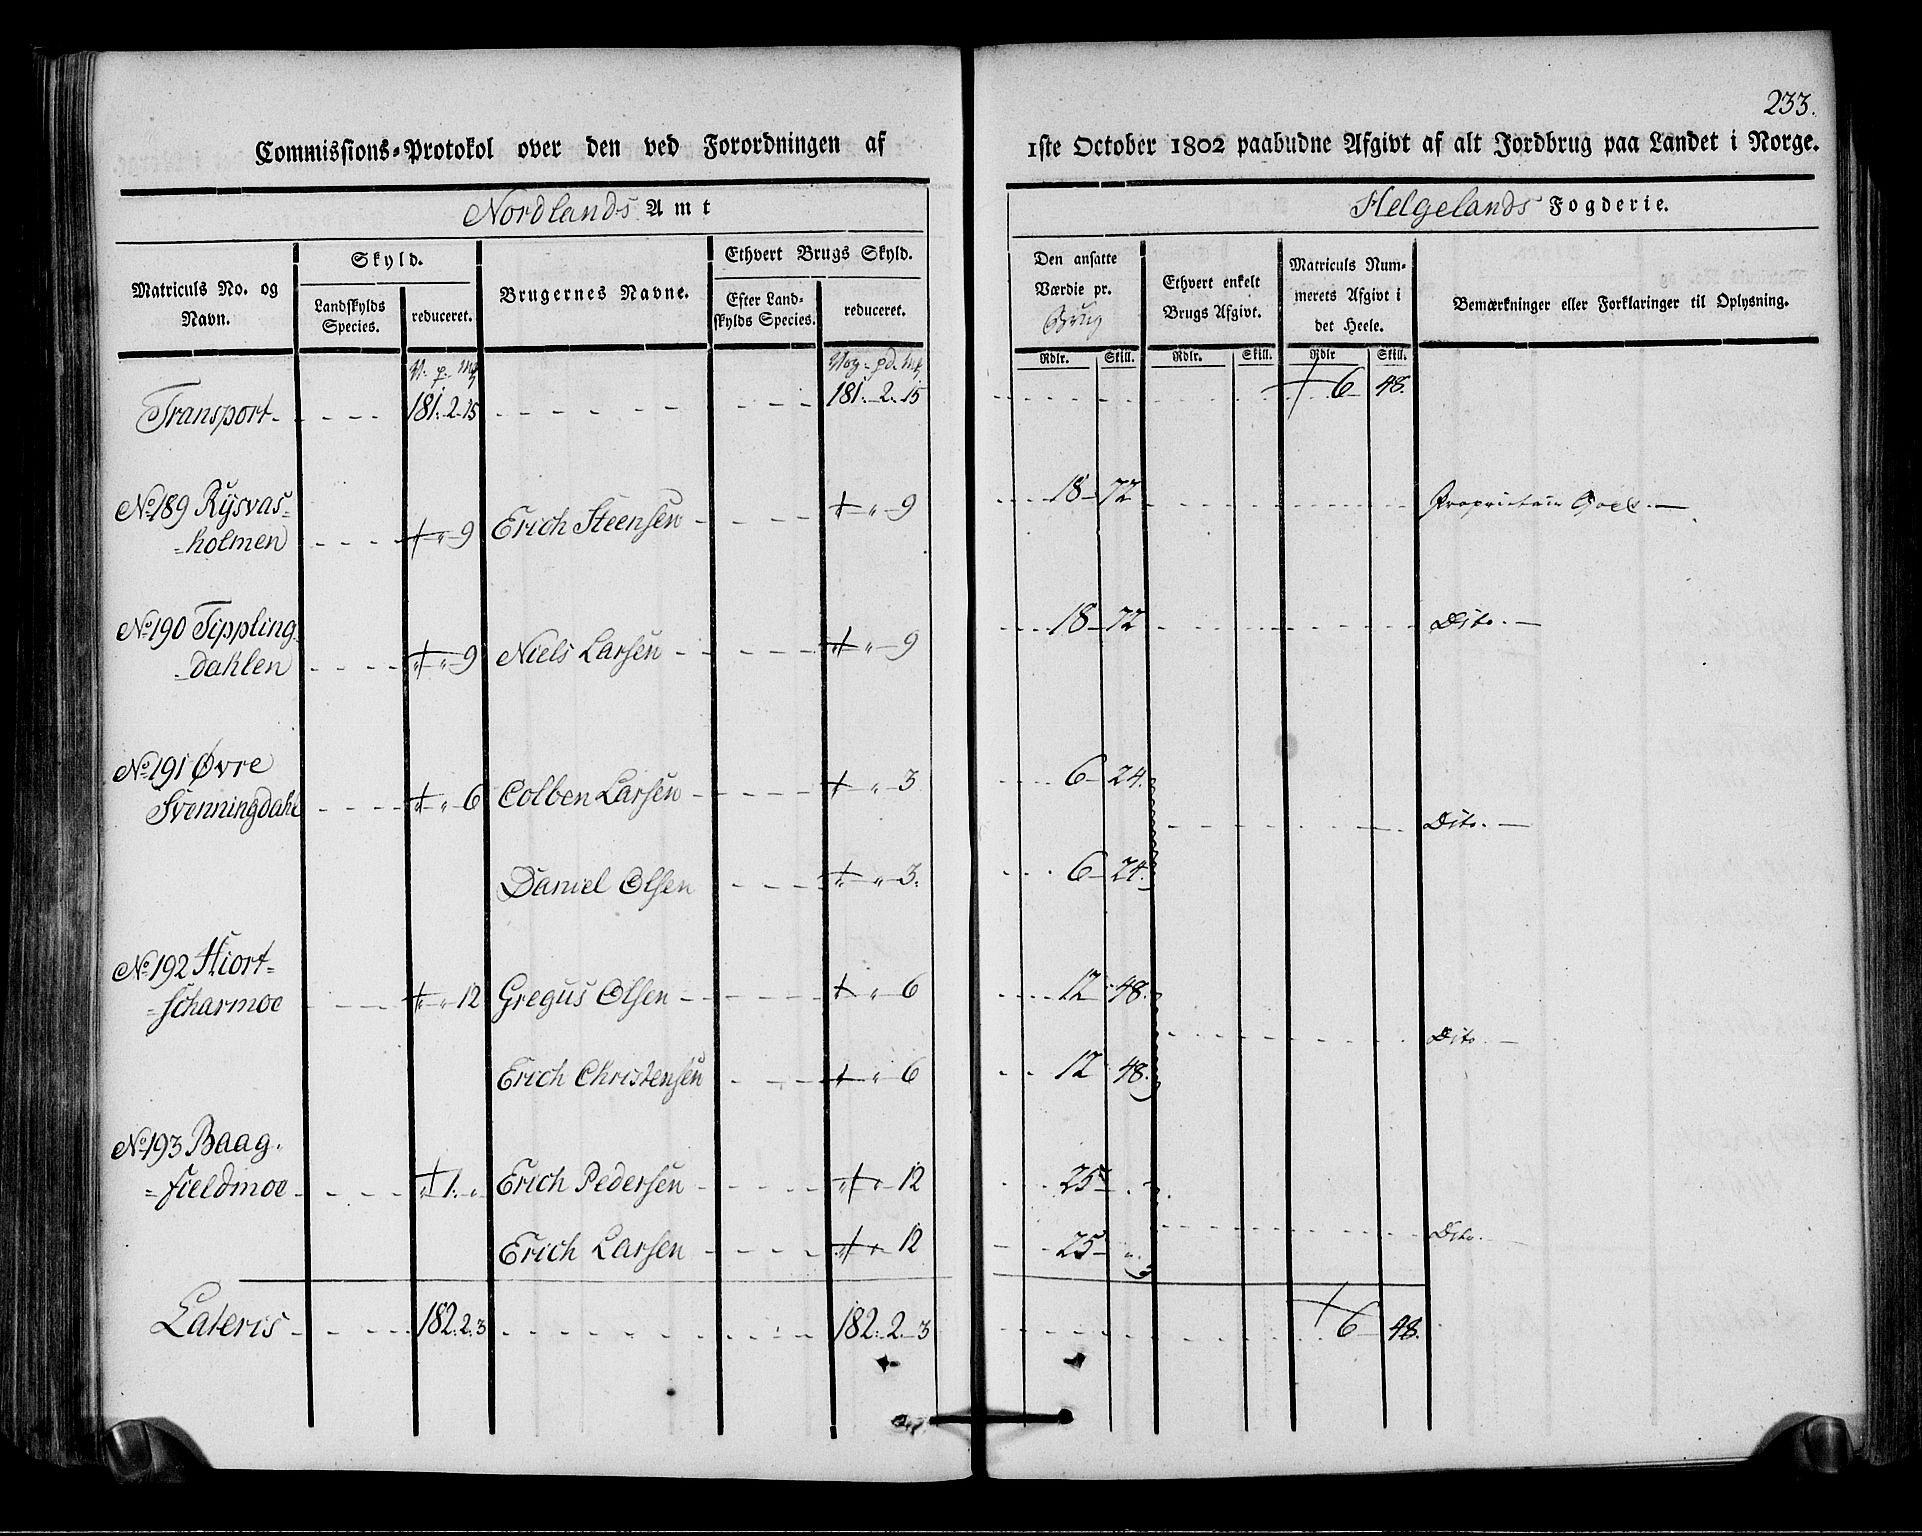 233.
Commissions-Protokol over den ved Forordningen af 1ste October 1802 paabudne Afgivt af alt Jordbrug paa Landet i Norge.
Nordlands Amt Helgelands Fogderie.
Matriculs No. og Navn.
Skyld.
Landskylds Species. reduceret.
Brugernes Navne.
Ethvert Brugs Skyld.
Efter Landskylds Species. reduceret.
Den ansatte Værdie pr. Brug
Ethvert enkelt Brugs Afgivt.
Matriculs Nummerets Afgivt i det Heele.
Bemærkninger eller Forklaringer til Oplysning.
Rdlr. Skill. Rdlr. Skill. Rdlr Skill.
V. p. Mk Vog. pd. Mk
Transport 181. 2. 15 181. 2. 15 6 48.
No 189 Rysvas=
=holmen " 9 Erich Steensen " 9 18 72 Proprietair Coel.
No 190 Tippling
=dahlen " " 9 Niels Larsen " " 9 18 72 Dito.
No 191 Øvre
Svenningdahl " " 6 Colben Larsen " 3 6 24. Dito.
Daniel Olsen " " 3. 6 24.
No 192 Hiort=
=scharmoe " " 12 Gregus Olsen " 6 12 48. Dito
Erich Christensen " " 6 12 48.
No 193 Baag=
=fieldmoe " 1. " Erich Pedersen " " 12 25 Dito.
Erich Larsen " " 12 25 "
Lateris 182. 2. 3 182. 2. 3 6 48.